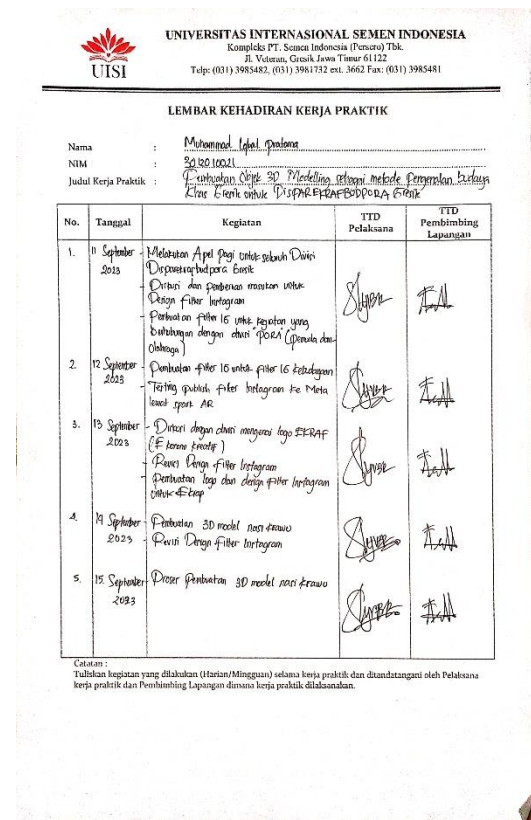 UISI
UNIVERSITAS INTERNASIONAL SEMEN INDONESIA
Kompleks PT. Semen Indonesia (Persero) Tbk.
Jl. Veteran, Gresik Jawa Timur 61122
Telp: (031) 3985482, (031) 3981732 ext. 3662 Fax: (031) 3985481
LEMBAR KEHADIRAN KERJA PRAKTIK
Nama : Muhammad Iqbal Pratama
NIM : 3012010021
Judul Kerja Praktik : Pembuatan Objek 3D Modelling sebagai metode Pengenalan budaya
khas Gresik untuk DISPAREKRAFBUDPORA Gresik
No. Tanggal Kegiatan TTD Pelaksana TTD Pembimbing Lapangan
1. 11 September 2023 - Melakukan Apel Pagi untuk seluruh Divisi
Disparekrafbudpora Gresik
- Diskusi dan pemberian masukan untuk
Design Filter Instagram
- Pembuatan filter IG untuk kegiatan yang
berhubungan dengan divisi "PORA" (pemuda dan
Olahraga)
2. 12 September 2023 - Pembuatan filter IG untuk filter IG kebudayaan
- Testing publish filter Instagram ke Meta
lewat spark AR
3. 13 September 2023 - Diskusi dengan divisi mengenai logo EKRAF
(Ekonomi kreatif)
- Revisi Design filter Instagram
- Pembuatan logo dan design filter Instagram
untuk Ekraf
4. 14 September 2023 - Pembuatan 3D model nasi krawu
- Revisi Design Filter Instagram
5. 15 September 2023 - Proses Pembuatan 3D model nasi krawu
Catatan :
Tuliskan kegiatan yang dilakukan (Harian/Mingguan) selama kerja praktik dan ditandatangani oleh Pelaksana
kerja praktik dan Pembimbing Lapangan dimana kerja praktik dilaksanakan.